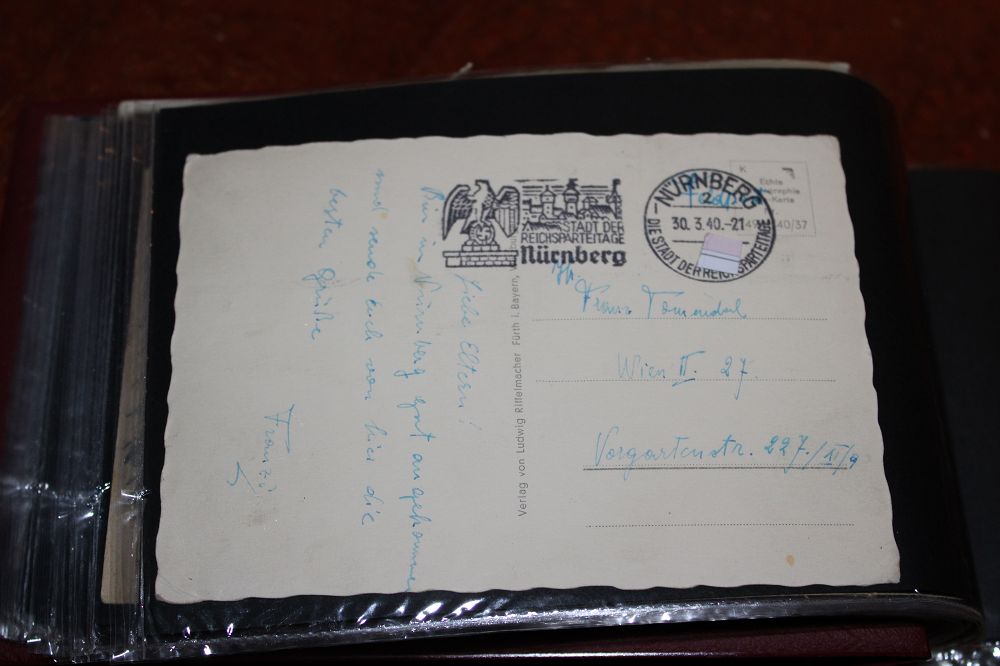 Liebe Eltern!
Bin in Nürnberg gut angekommen
und sende Euch von hier die
besten Grüße
Franzi
Verlag von Ludwig Riffelmacher Fürth i. Bayern,
STADT DER
REICHSPARTEITAGE
Nürnberg
NÜRNBERG
2
30.3.40.-21
DIE STADT DER REICHSPARTEITAGE
K
Echte
-Karte
40/37
Franz
Wien II. 27.
Vorgartenstr. 227./III/9